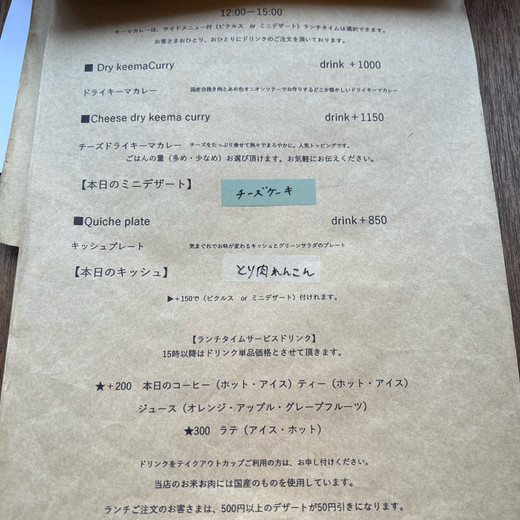 12:00―15:00
キーマカレーは、サイドメニュー付（ピクルス or ミニデザート）ランチタイムは選択できます。
お客さまおひとり、おひとりにドリンクのご注文を頂いております。
■ Dry keemaCurry drink +1000
ドライキーマカレー 国産合挽き肉とあめ色オニオンソテーでお作りするどこか懐かしいドライキーマカレー
■Cheese dry keema curry drink+1150
チーズドライキーマカレー チーズをたっぷり乗せて熱々でまろやかに。人気トッピングです。
ごはんの量（多め・少なめ）お選び頂けます。お気軽にお伝えください。
【本日のミニデザート】 チーズケーキ
■Quiche plate drink+850
キッシュプレート 気まぐれでお味が変わるキッシュとグリーンサラダのプレート
【本日のキッシュ】 とり肉れんこん
▶+150で（ピクルス or ミニデザート）付けれます。
【ランチタイムサービスドリンク】
15時以降はドリンク単品価格とさせて頂きます。
★+200 本日のコーヒー（ホット・アイス）ティー（ホット・アイス）
ジュース（オレンジ・アップル・グレープフルーツ）
★300 ラテ（アイス・ホット）
ドリンクをテイクアウトカップご利用の方は、お申し付けください。
当店のお米お肉には国産のものを使用しています。
ランチご注文のお客さまは、500円以上のデザートが50円引きになります。